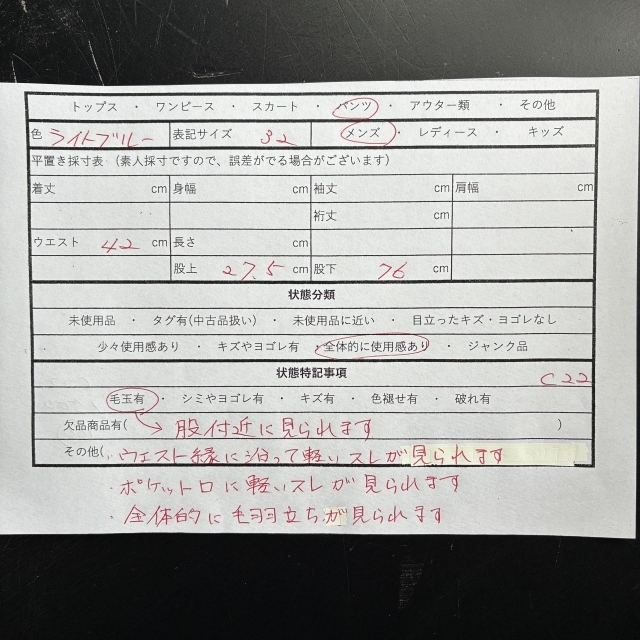 トップス ・ ワンピース ・ スカート ・ パンツ ・ アウター類 ・ その他
色 ライトブルー 表記サイズ 32 メンズ ・ レディース ・ キッズ
平置き採寸表 （素人採寸ですので、誤差がでる場合がございます）
着丈 cm 身幅 cm 袖丈 cm 肩幅 cm
裄丈 cm
ウエスト 42 cm 長さ cm
股上 27.5 cm 股下 76 cm
状態分類
未使用品 ・ タグ有(中古品扱い) ・ 未使用品に近い ・ 目立ったキズ・ヨゴレなし
少々使用感あり ・ キズやヨゴレ有 ・ 全体的に使用感あり ・ ジャンク品
状態特記事項 C22
毛玉有 ・ シミやヨゴレ有 ・ キズ有 ・ 色褪せ有 ・ 破れ有
欠品商品有( 股付近に見られます )
その他( ・ウエスト縁に沿って軽いスレが見られます
・ポケット口に軽いスレが見られます
・全体的に毛羽立ちが見られます